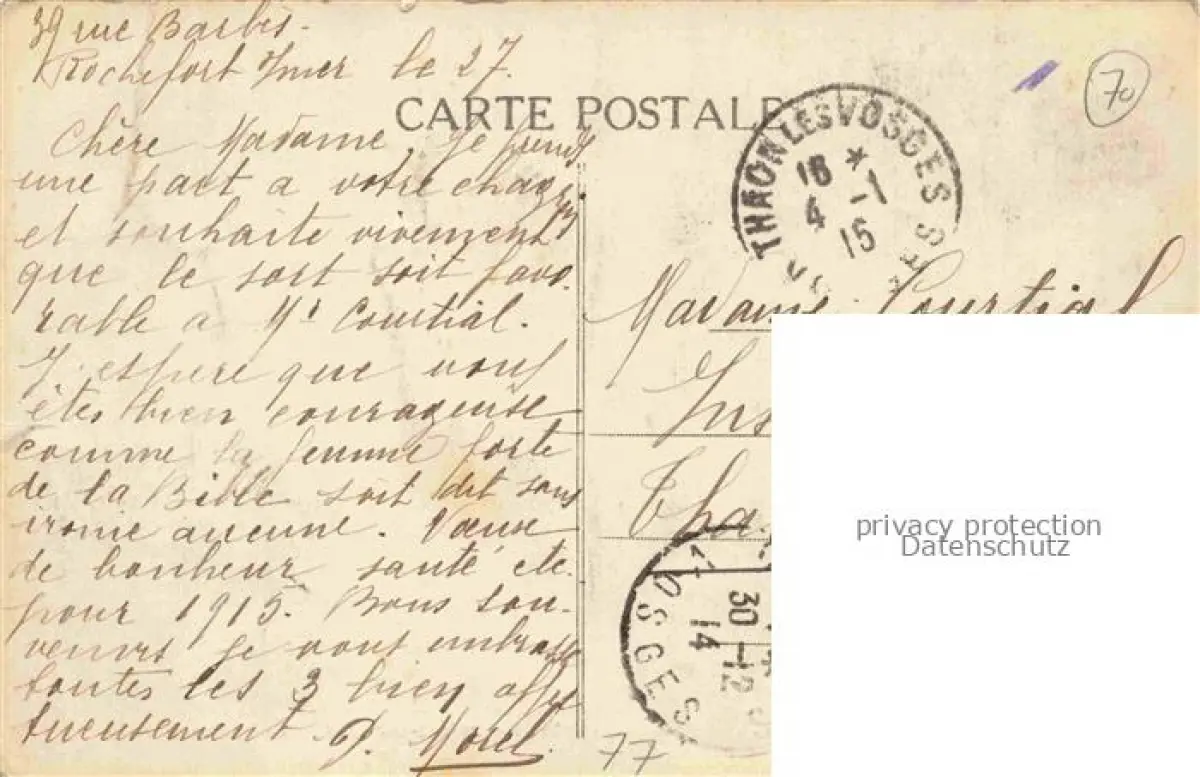 39 rue Barbès.
Rochefort s/mer le 27.
CARTE POSTALE
Chère Madame, je prends
une part a votre chag.
et souhaite vivement
que le sort soit favo-
rable a Mr Courtial.
J'espere que vous
êtes bien courageuse
comme la femme forte
de la Bible soit dit sans
ironie aucune. Vœux
de bonheur, santé, etc.
pour 1915. Bons sou-
venirs je vous embrasse
toutes les 3 bien affec
tueusement. P. Morel.
70
THAON LES VOSGES
16 *
4 -1
15
Madame Courtial
Ins
Thao
VOSGES
30-12
14
77
privacy protection
Datenschutz